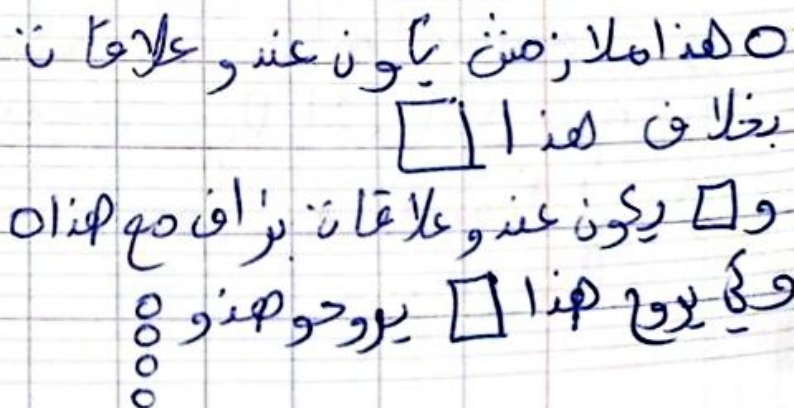 ○ هذا ملازمش يكون عندو علاقات
بخلاف هذا □
و □ ويكون عندو علاقات بزاف مع هذا ○
وكي يروح هذا □ يروحو هذو ○
○
○
○